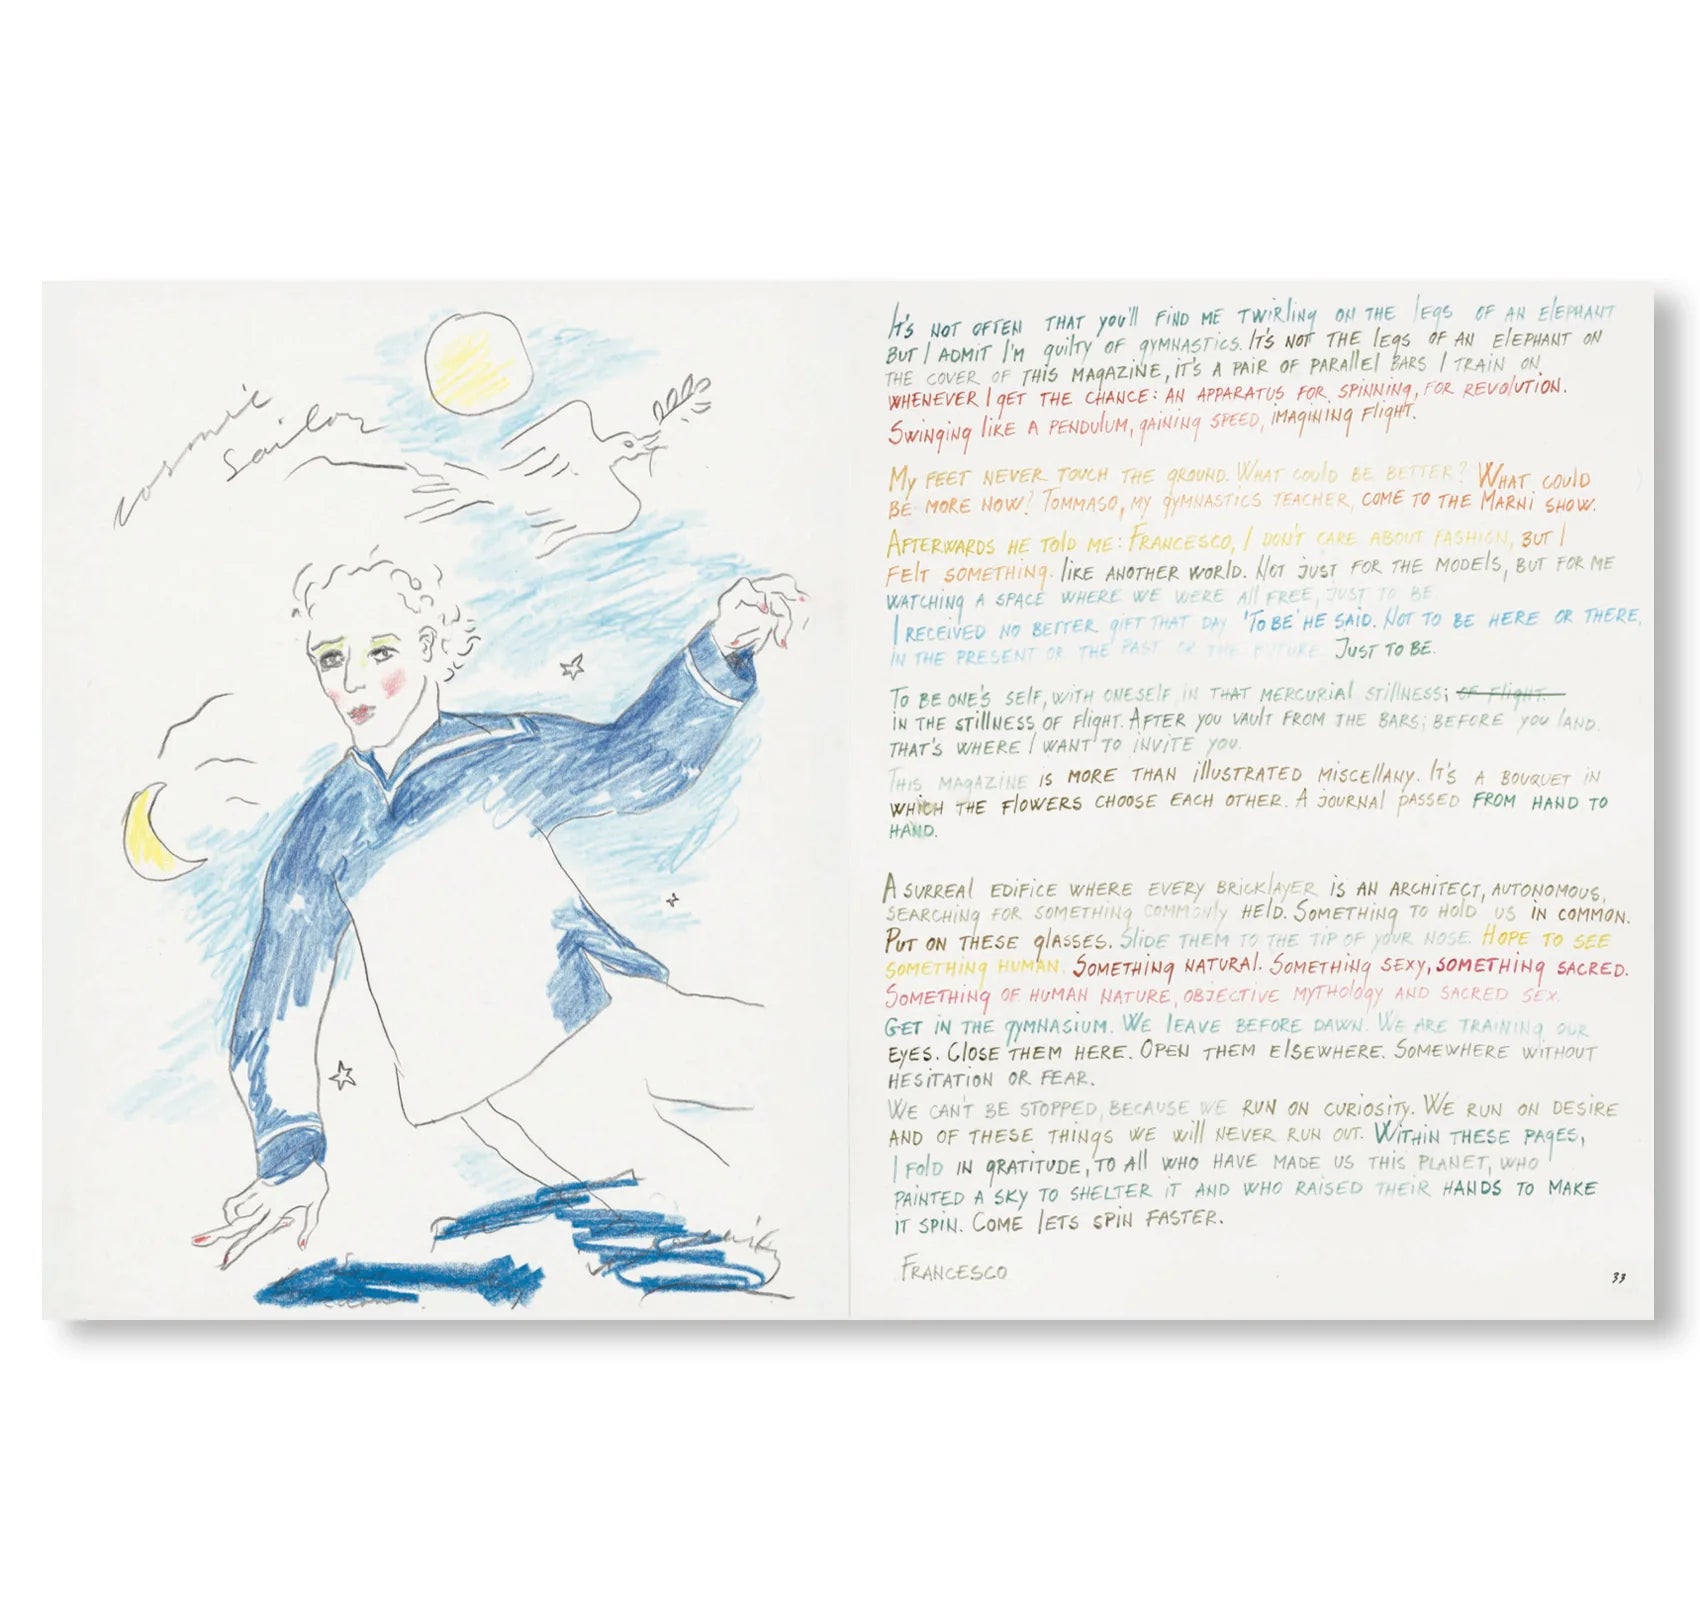 cosmic
sailor
It's not often that you'll find me twirling on the legs of an elephant
but I admit I'm guilty of gymnastics. It's not the legs of an elephant on
the cover of this magazine, it's a pair of parallel bars I train on
whenever I get the chance: an apparatus for spinning, for revolution.
Swinging like a pendulum, gaining speed, imagining flight.
My feet never touch the ground. What could be better? What could
be more now? Tommaso, my gymnastics teacher, come to the Marni show.
Afterwards he told me: Francesco, I don't care about fashion, but I
felt something. like another world. Not just for the models, but for me
watching a space where we were all free, just to be.
I received no better gift that day 'To be' he said. Not to be here or there,
in the present or the past or the future. Just to be.
To be one's self, with oneself, in that mercurial stillness; of flight.
in the stillness of flight. After you vault from the bars; before you land.
that's where I want to invite you.
This magazine is more than illustrated miscellany. It's a bouquet in
which the flowers choose each other. A journal passed from hand to
hand.
A surreal edifice where every bricklayer is an architect, autonomous,
searching for something commonly held. Something to hold us in common.
Put on these glasses. Slide them to the tip of your nose. Hope to see
something human. Something natural. Something sexy, something sacred.
Something of human nature, objective mythology and sacred sex.
Get in the gymnasium. We leave before dawn. We are training our
eyes. Close them here. Open them elsewhere. Somewhere without
hesitation or fear.
We can't be stopped, because we run on curiosity. We run on desire
and of these things we will never run out. Within these pages,
I fold in gratitude, to all who have made us this planet, who
painted a sky to shelter it and who raised their hands to make
it spin. Come lets spin faster.
Francesco
33